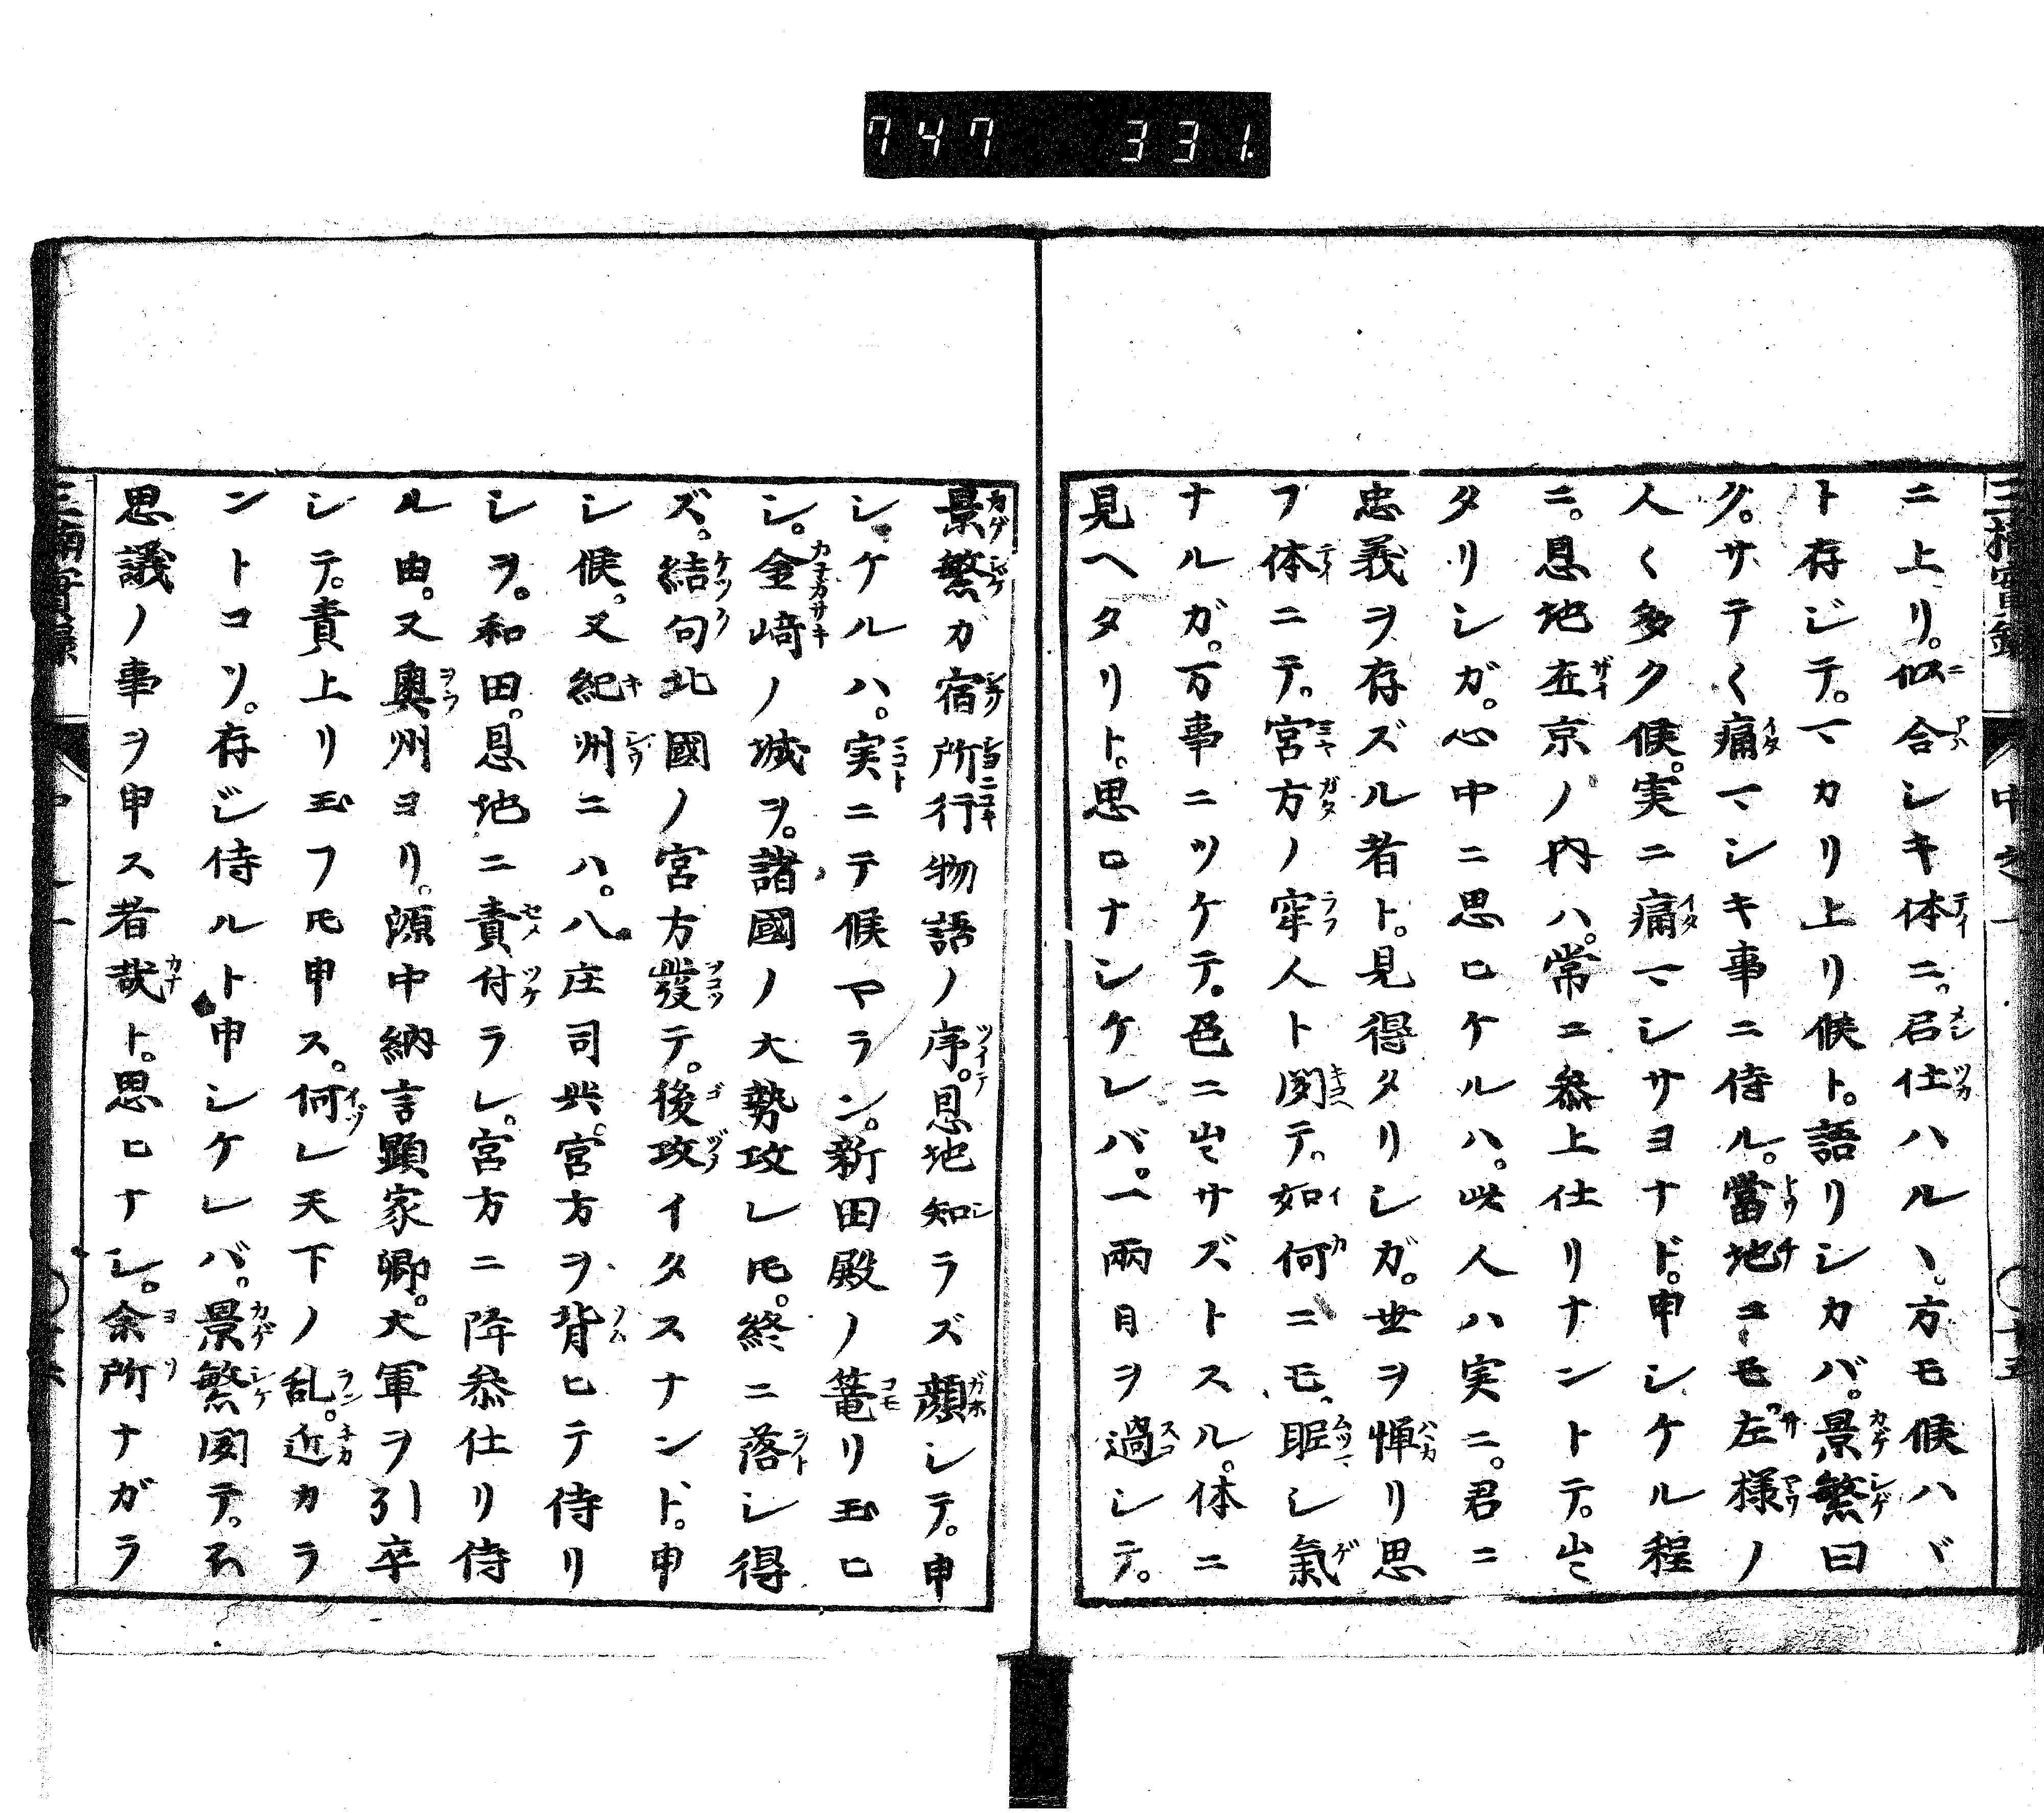 747 331.
ニ上リ。似合シキ体ニ。召仕ハル丶。方モ候ハヾ
ト存ジテ。マカリ上リ候ト。語リシカバ。景繁曰
ク。サテ〱痛マシキ事ニ侍ル。當地ニモ。左様ノ
人〱多ク候。実ニ痛マシサヨナド。申シケル程
ニ。恩地在京ノ内ハ。常ニ參上仕リナントテ。出
タリシガ。心中ニ思ヒケルハ。此人ハ実ニ。君ニ
忠義ヲ存ズル者ト。見得タリシガ。世ヲ憚リ思
フ体ニテ。宮方ノ窂人ト聞テ。如何ニモ。眤シ氣
ナルガ。万事ニツケテ。色ニ出サズトスル。体ニ
見ヘタリト。思ヒナシケレバ。一兩日ヲ過シテ。
景繁ガ宿所行物語ノ序。恩地知ラズ顔シテ。申
シケルハ。実ニテ候ヤラン。新田殿ノ篭リ玉ヒ
シ。金﨑ノ城ヲ。諸國ノ大勢攻レ𪜈。終ニ落シ得
ズ。結句北國ノ宮方發テ。後攻イタスナンド。申
シ候。又紀州ニハ。八庄司共。宮方ヲ背ヒテ侍リ
シヲ。和田。恩地ニ責付ラレ。宮方ニ降參仕リ侍
ル由。又奥州ヨリ。源中納言顕家卿。大軍ヲ引卒
シテ。責上リ玉フ𪜈申ス。何レ天下ノ乱。近カラ
ントコソ。存ジ侍ルト申シケレバ。景繁聞テ。不
思議ノ事ヲ申ス者哉ト。思ヒナシ。余所ナガラ